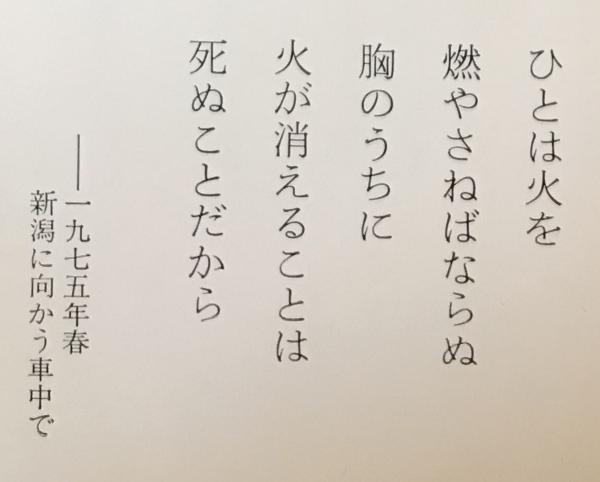 ひとは火を
燃やさねばならぬ
胸のうちに
火が消えることは
死ぬことだから
――一九七五年春
新潟に向かう車中で